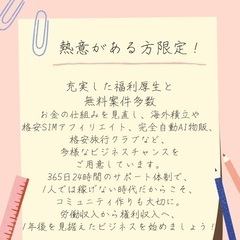 熱意がある方限定！
充実した福利厚生と
無料案件多数
お金の仕組みを見直し、海外積立や
格安SIMアフィリエイト、完全自動AI物販、
格安旅行クラブなど、
多様なビジネスチャンスを
ご用意しています。
365日24時間のサポート体制で、
1人では稼げない時代だからこそ、
コミュニティ作りも大切に。
労働収入から権利収入へ、
1年後を見据えたビジネスを始めましょう！